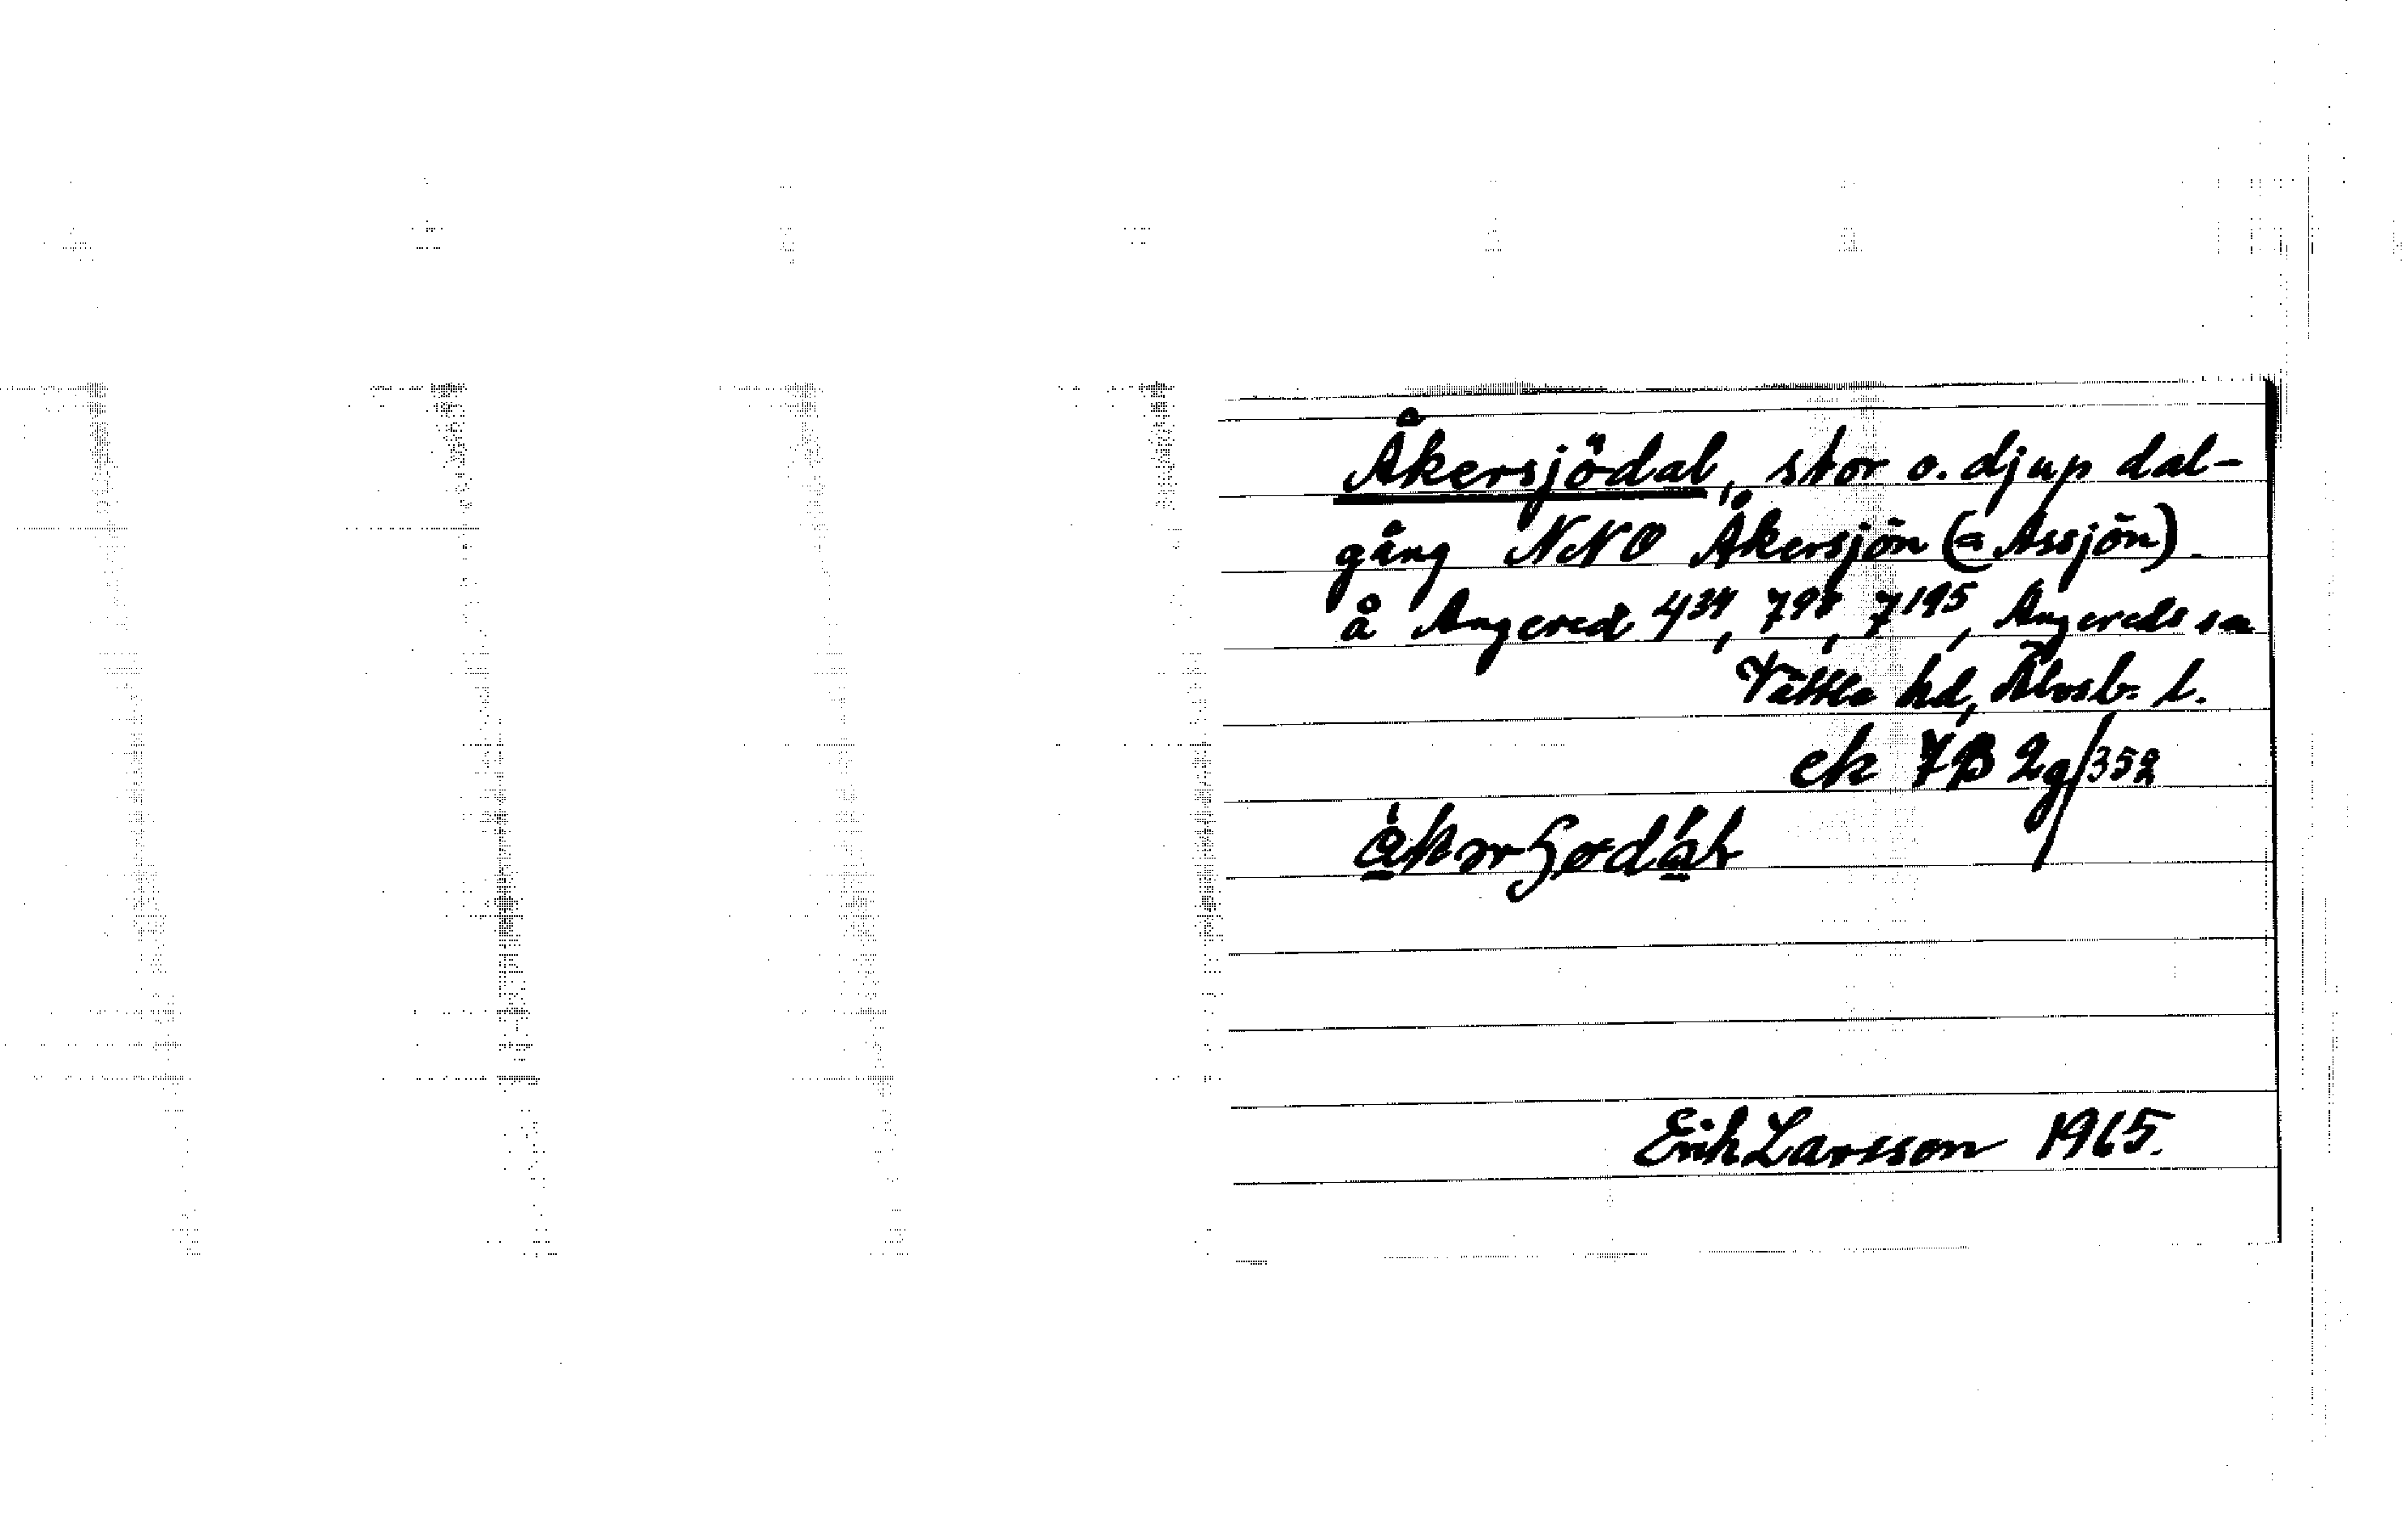 Åkersjödal, stor o. djup dal-
gång NNO Åkersjön (= Assjön).
å Angered 4³⁴, 7⁹⁸, 7¹⁹⁵, Angereds sn
Vättle hd, Älvsb. l.
ek 7B 2g/352
Erik Larsson 1965.